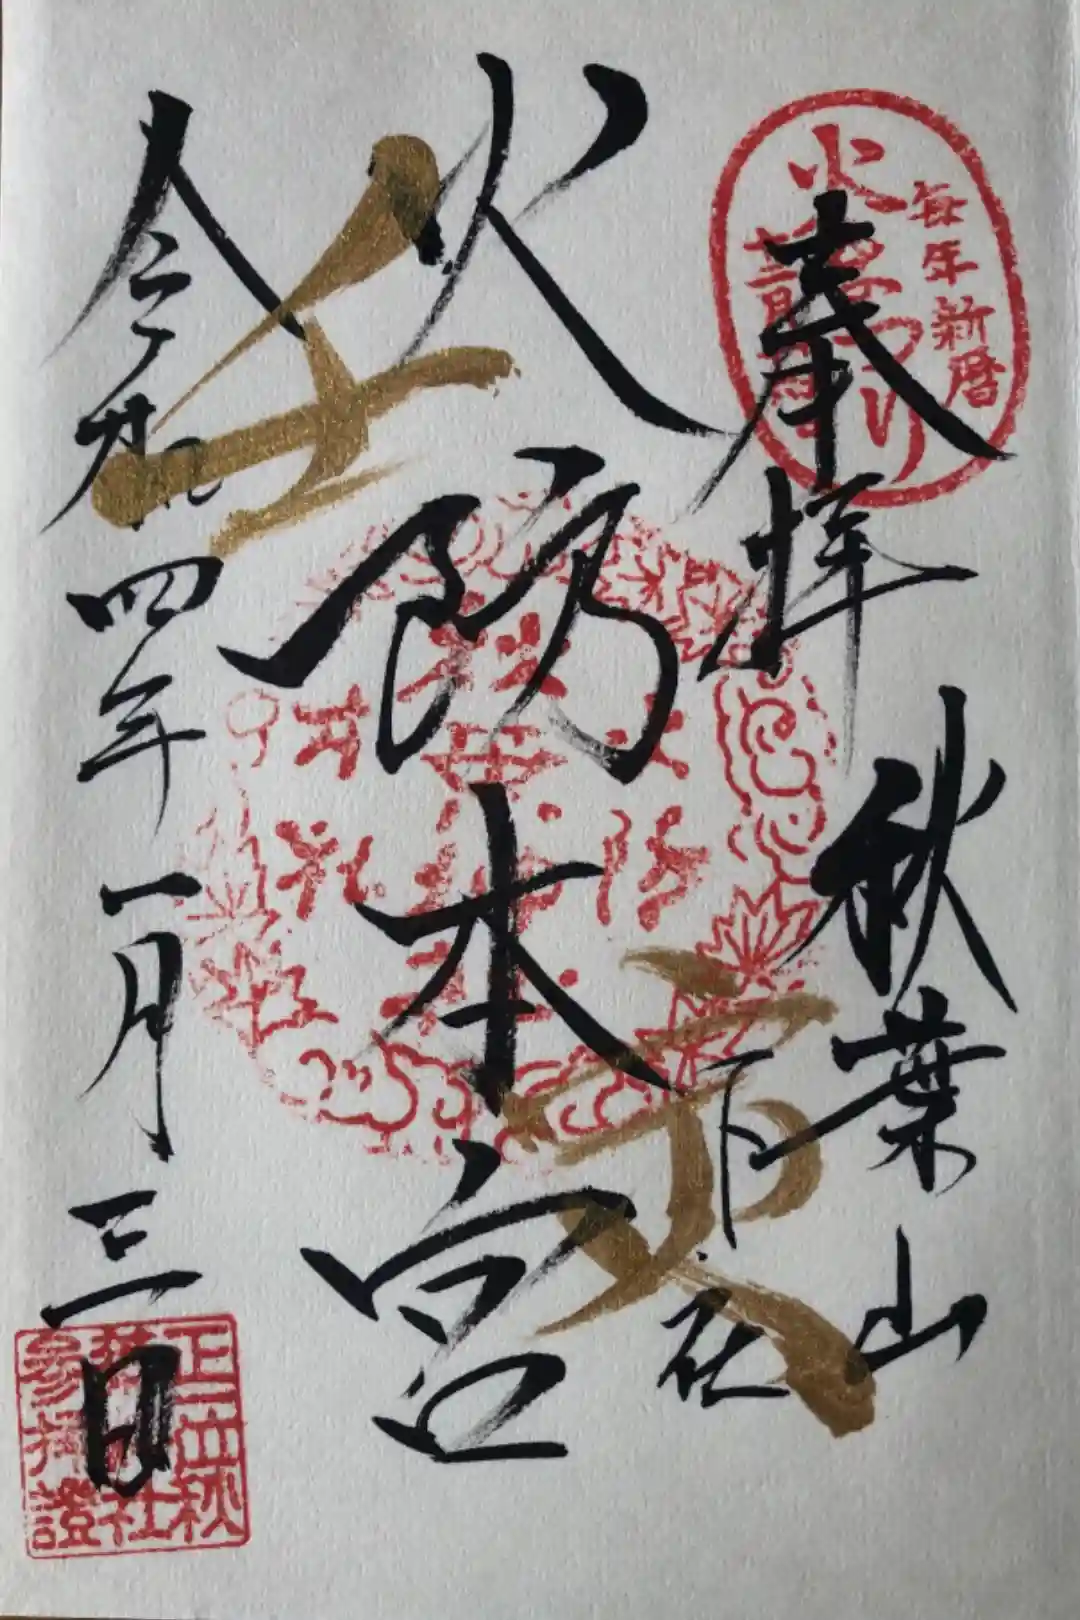 奉拝
秋葉山
下社
火防本宮
壬寅
令和四年一月三日
毎年新暦
火まつり
正一位秋
葉神社
参拝證